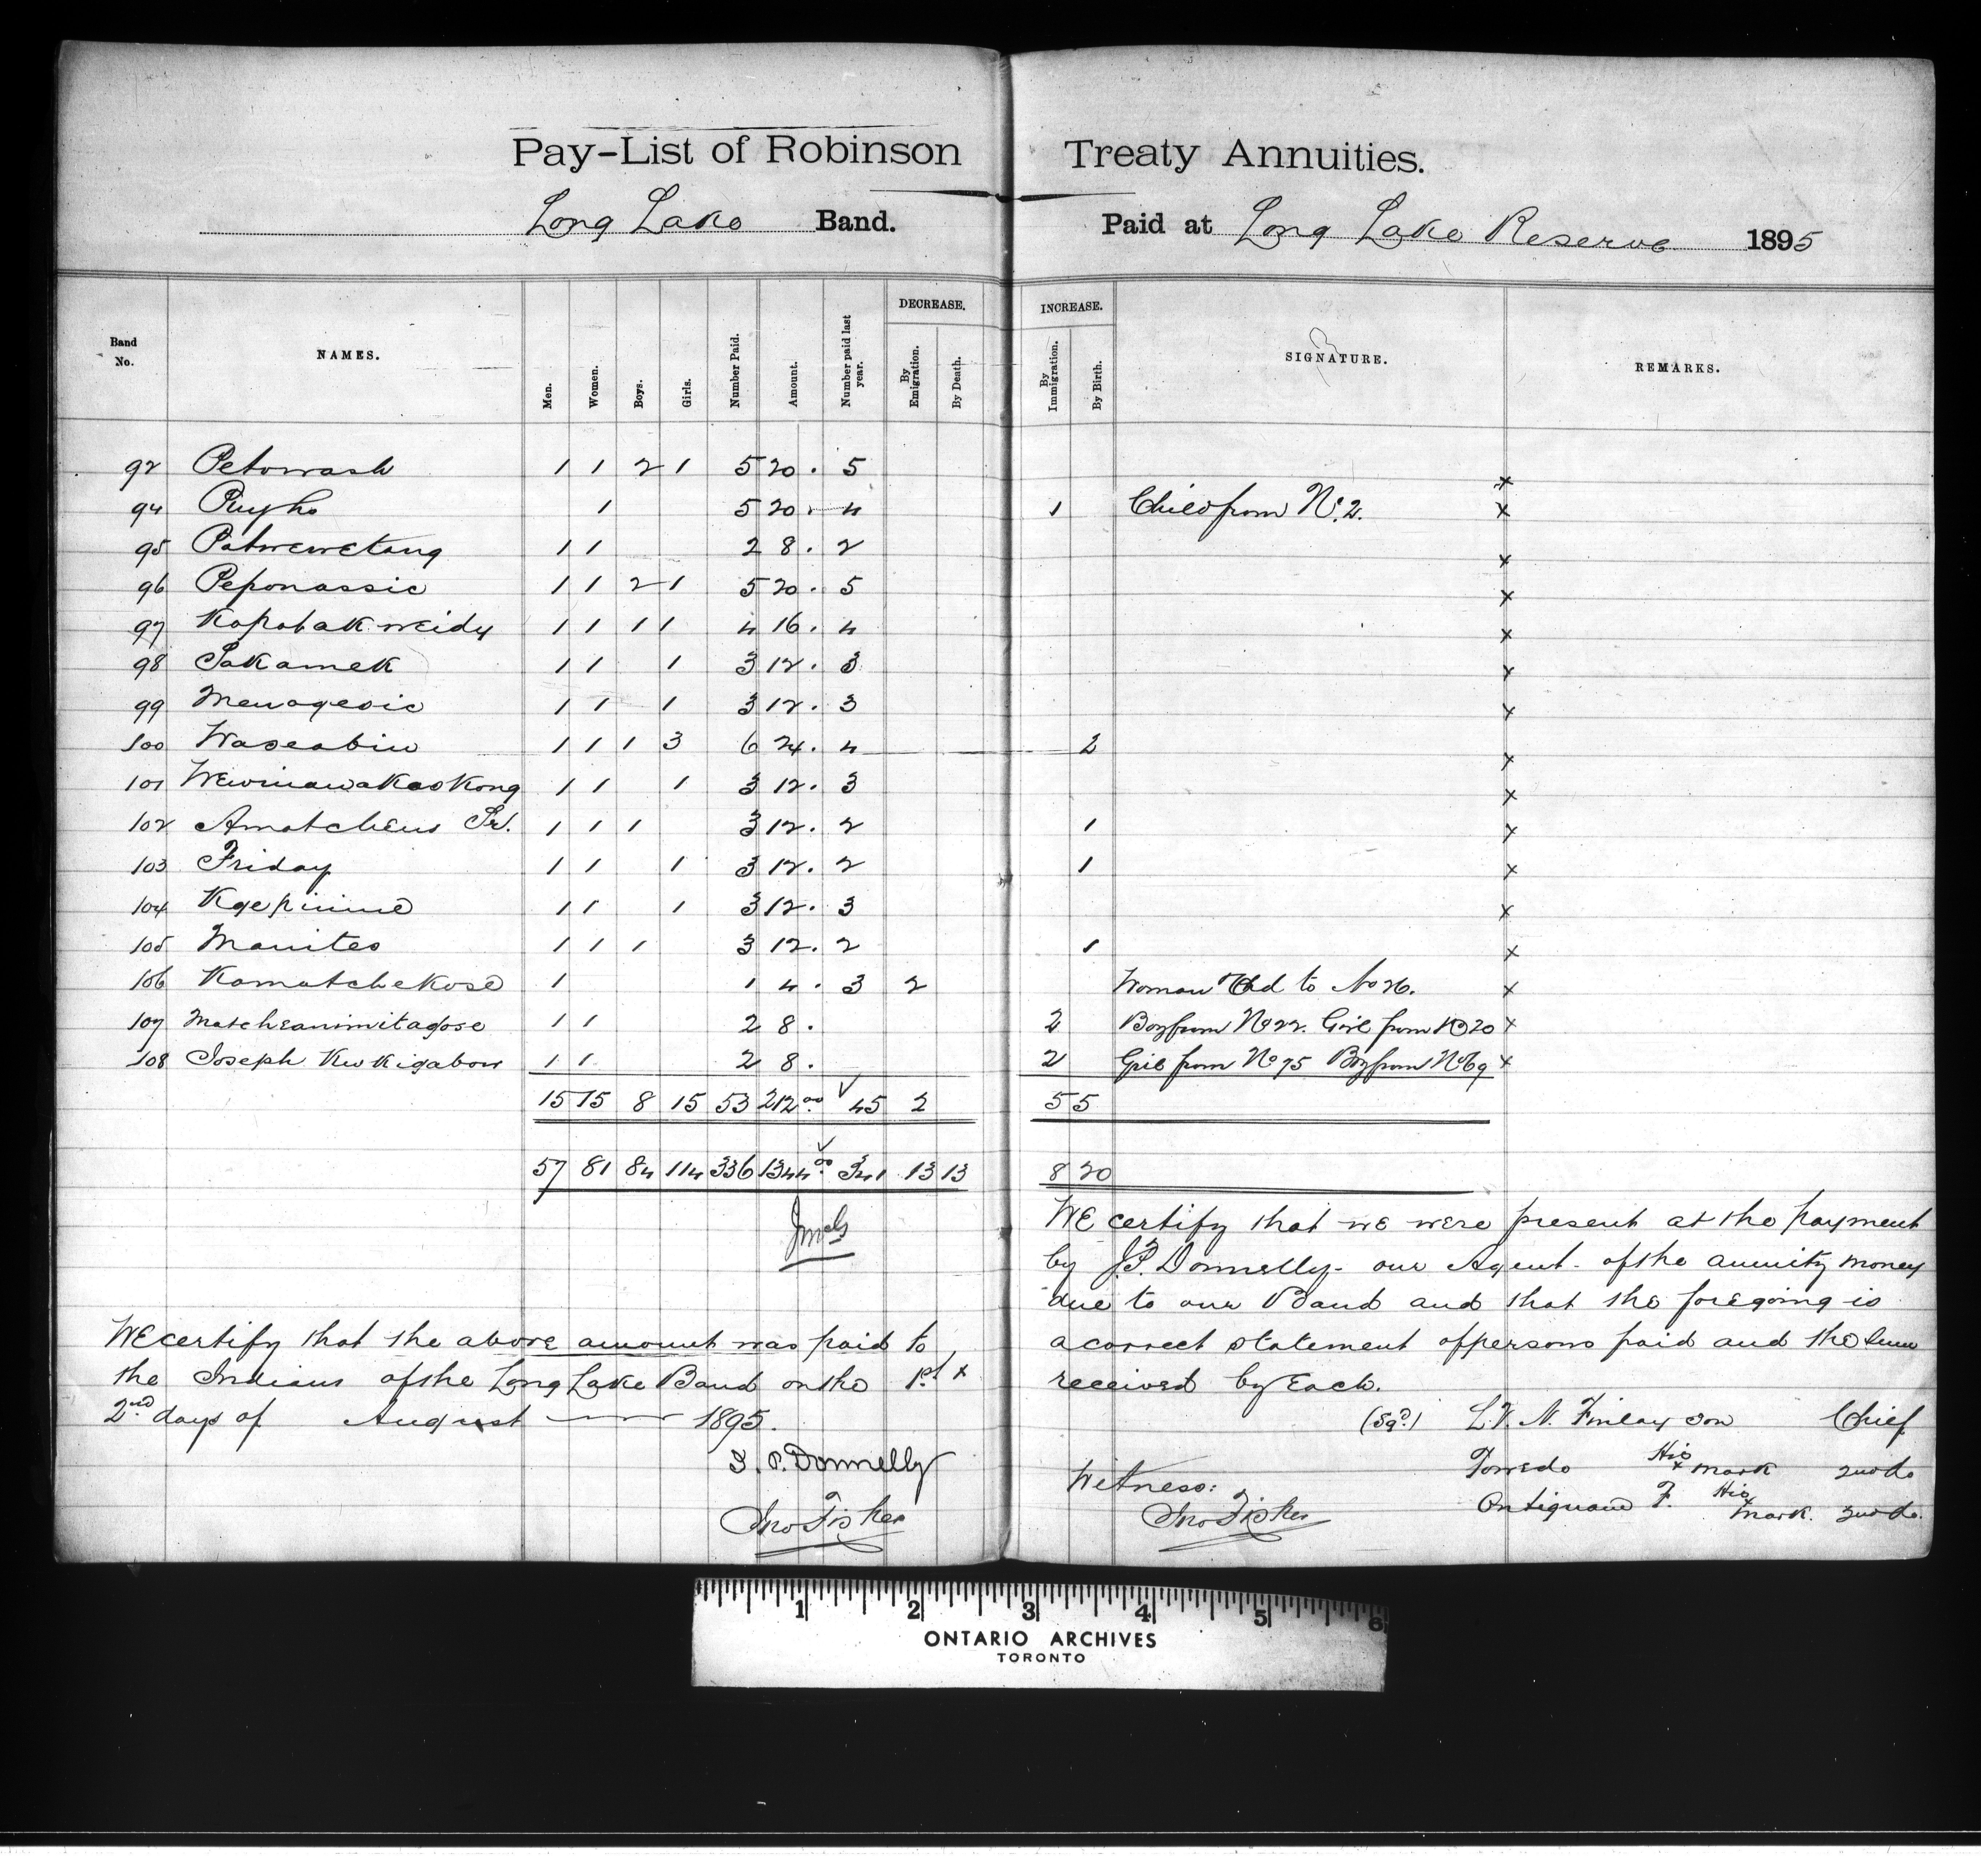 Pay-List of Robinson Treaty Annuities.
Long Lake Band. Paid at Long Lake Reserve 1895
Band No. NAMES. Men. Women. Boys. Girls. Number Paid. Amount. Number paid last year. DECREASE. By Emigration. By Death. INCREASE. By Immigration. By Birth. SIGNATURE. REMARKS.
92 Petowash 1 1 2 1 5 20 . 5 x
94 1 5 20 . 4 1 Child from No. 2. x
95 Patwewetang 1 1 2 8 . 2 x
96 Peponassic 1 1 2 1 5 20 . 5 x
97 Kapabakweidy 1 1 1 1 4 16 . 4 x
98 Sakamek 1 1 1 3 12 . 3 x
99 Menageosic 1 1 1 3 12 . 3 x
100 Waseabin 1 1 1 3 6 24 . 4 2 x
101 1 1 1 3 12 . 3 x
102 Amatchens Sr. 1 1 1 3 12 . 2 1 x
103 Friday 1 1 1 3 12 . 2 1 x
104 Kgepinine 1 1 1 3 12 . 3 x
105 Manites 1 1 1 3 12 . 2 1 x
106 Kamatchekose 1 1 4 . 3 2 Woman to No 26. x
107 Matcheanimitagose 1 1 2 8 . 2 Boy from No 22. Girl from No 20 x
108 Joseph Kwkigabow 1 1 2 8 . 2 Girl from No 75 Boy from No 69 x
15 15 8 15 53 212 00 45 2 5 5
57 81 84 114 336 1344 00 341 13 13 8 20
WE certify that the above amount was paid to
the Indians of the Long Lake Band on the 1st x
2nd days of August 1895.
J. P. Donnelly
Jno Fisher
WE certify that we were present at the payment
by J.P. Donnelly - our Agent - of the annuity money
due to our Band and that the foregoing is
a correct statement of persons paid and the sum
received by Each.
(Sgd.) Finlayson Chief
Towedo His x mark 2nd do
Antiquam F. His x mark. 3nd do.
Witness:
Jno Fisher
1 2 3 4 5 6
ONTARIO ARCHIVES
TORONTO